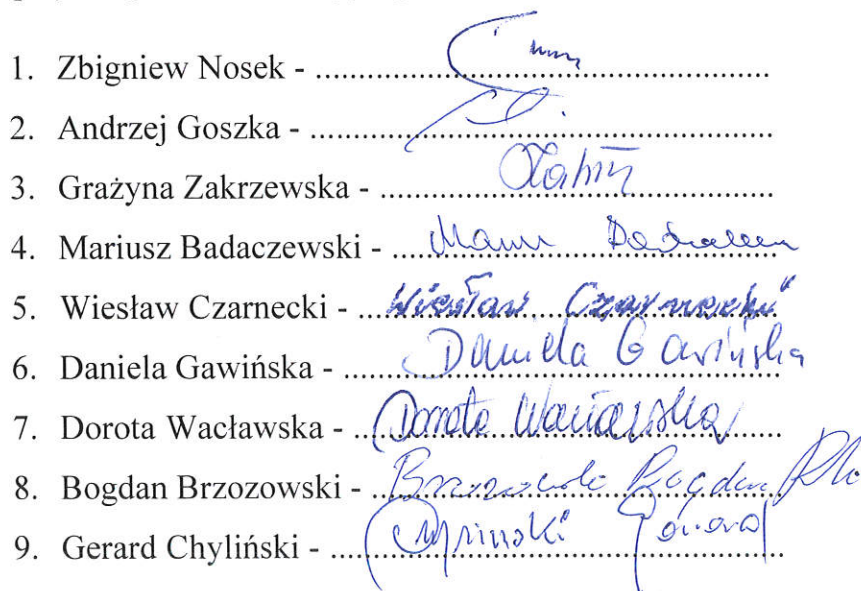 1. Zbigniew Nosek - ........................................................
2. Andrzej Goszka - .........................................................
3. Grażyna Zakrzewska - ................................................
4. Mariusz Badaczewski - ...............................................
5. Wiesław Czarnecki - ...Wiesław Czarnecki...
6. Daniela Gawińska - ...Daniela Gawińska
7. Dorota Wacławska - ...Dorota Wacławska...
8. Bogdan Brzozowski - ...Brzozowski Bogdan
9. Gerard Chyliński - ...Chyliński Gerard